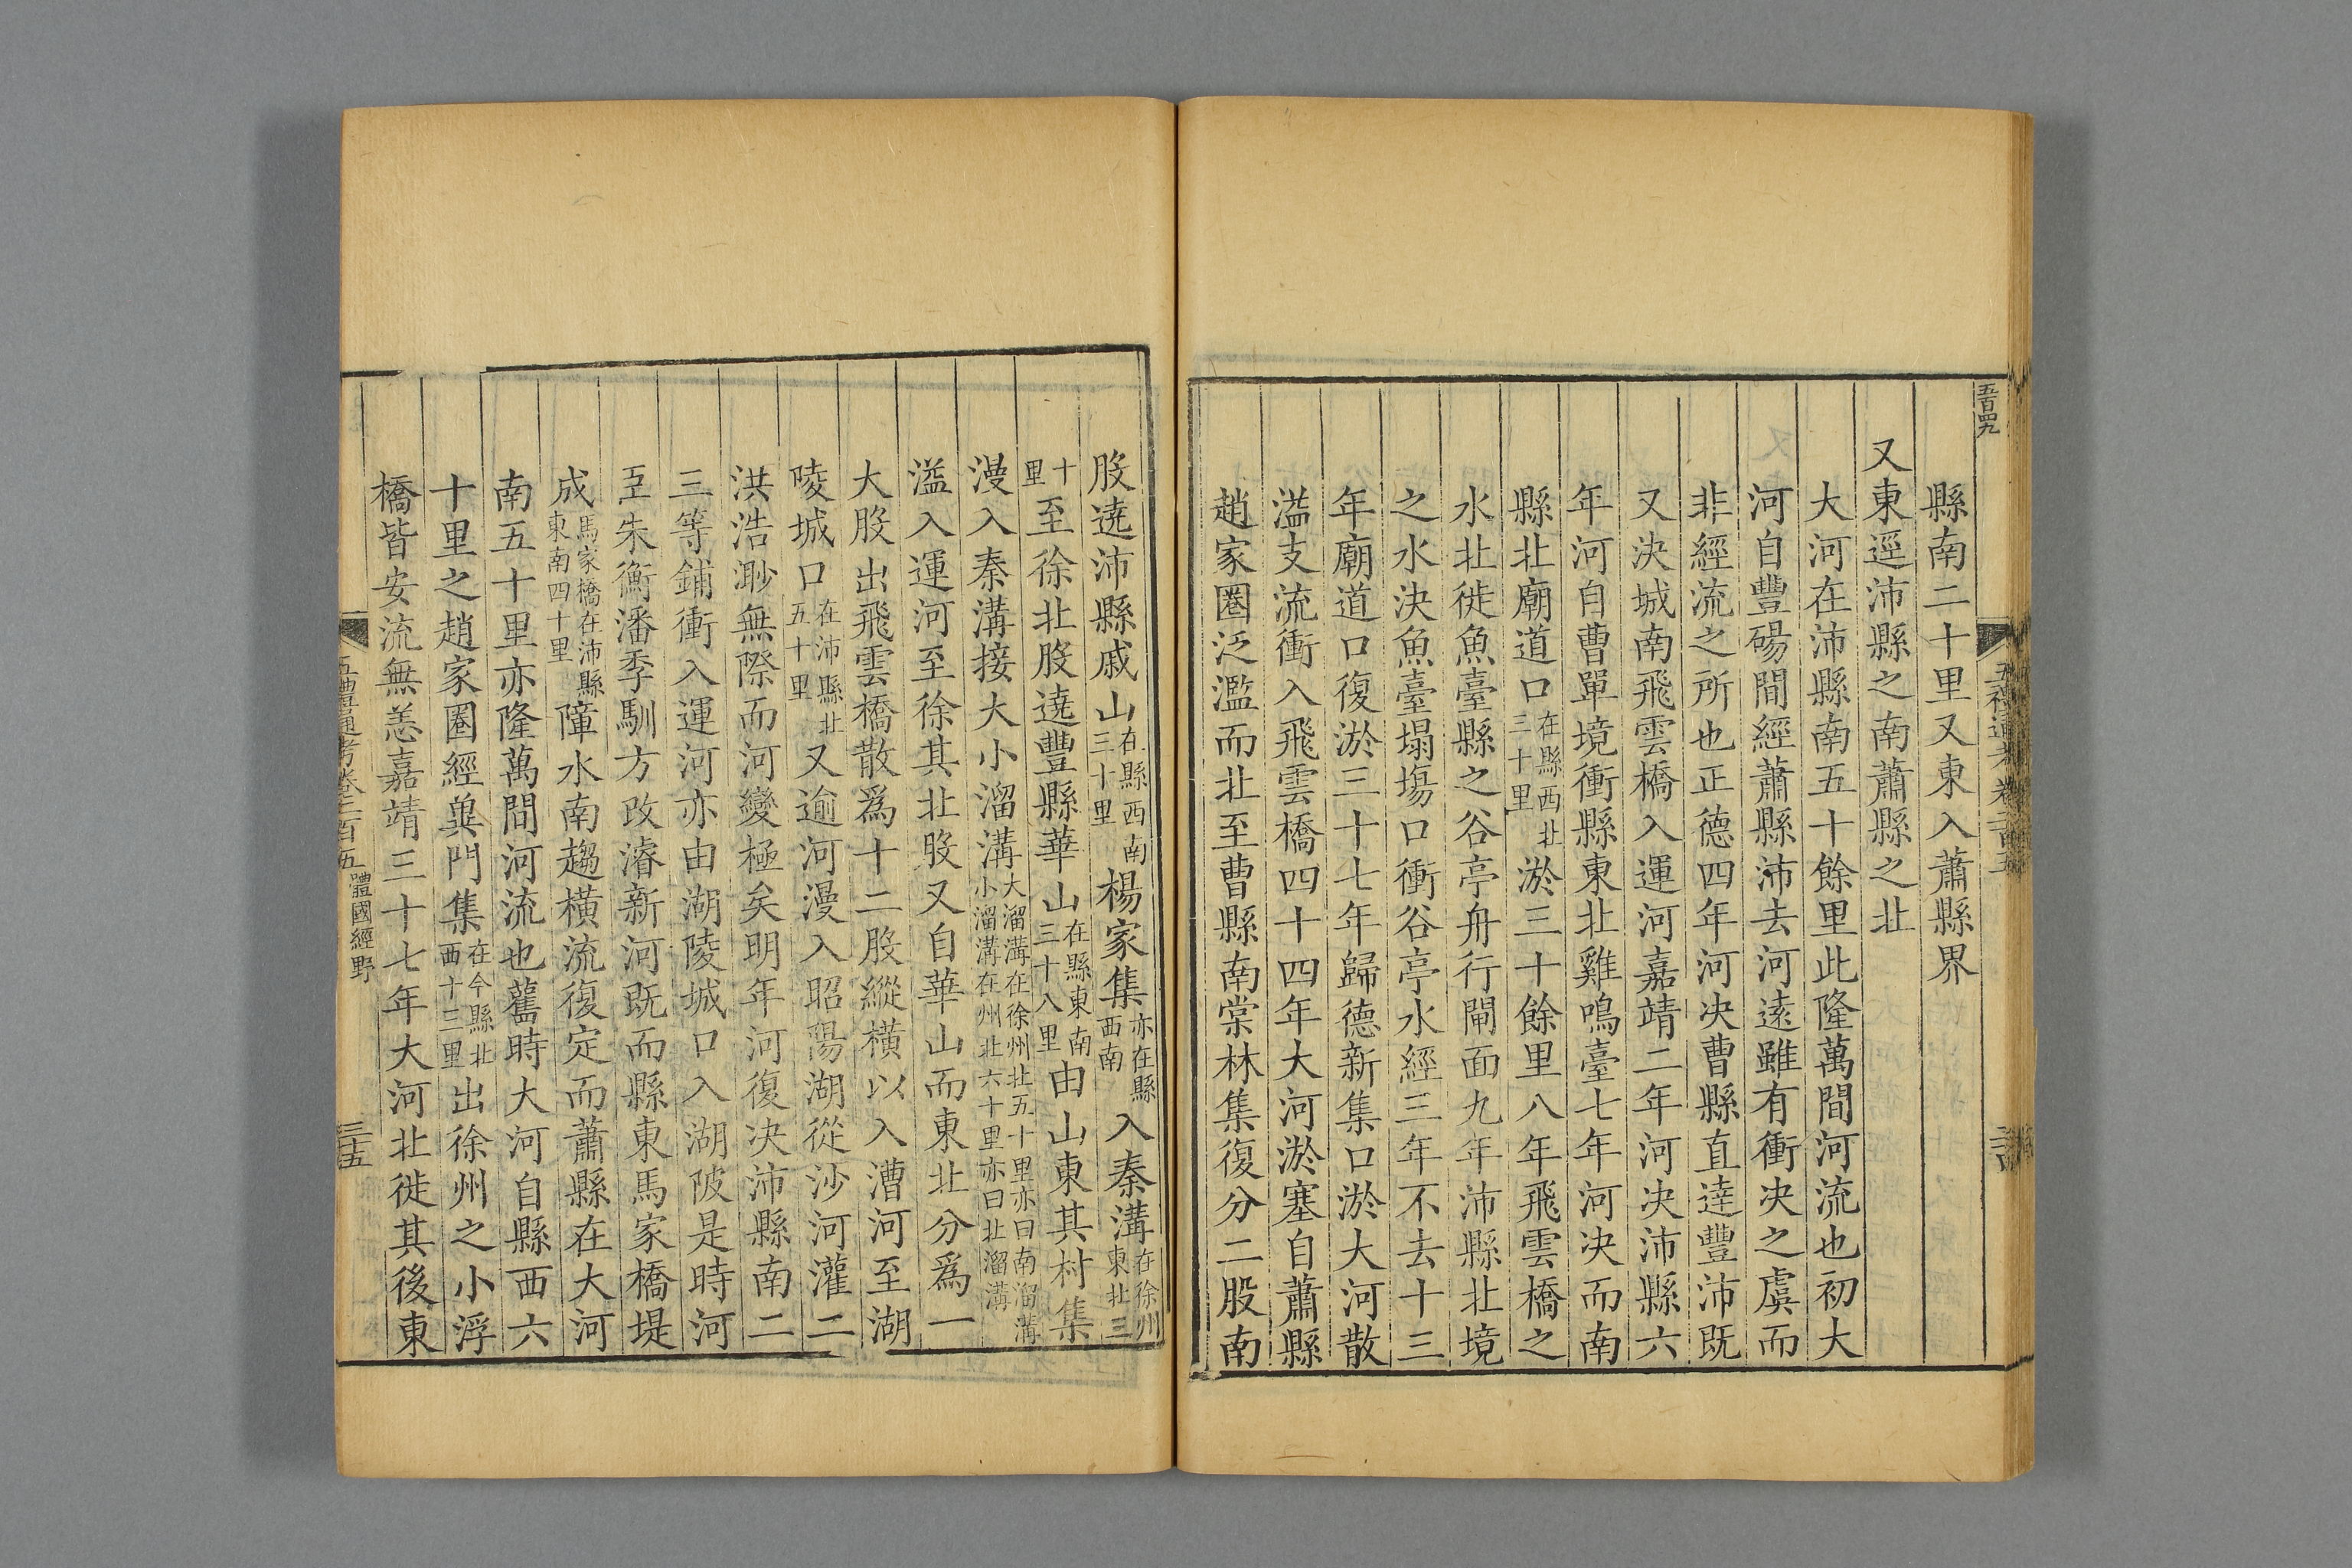 五百四九
縣南二十里又東入蕭縣界
又東逕沛縣之南蕭縣之北
大河在沛縣南五十餘里此隆萬間河流也初大
河自豐碭間經蕭縣沛去河遠雖有衝决之虞而
非經流之所也正德四年河决曹縣直逹豐沛既
又決城南飛雲橋入運河嘉靖二年河决沛縣六
年河自曹單境衝縣東北雞鳴臺七年河决而南
縣北廟道口在縣西北三十里淤三十餘里八年飛雲橋之
水北徙魚臺縣之谷亭舟行閘面九年沛縣北境
之水決魚臺塌塲口衝谷亭水經三年不去十三
年廟道口復淤三十七年歸德新集口淤大河散
溢支流衝入飛雲橋四十四年大河淤塞自蕭縣
趙家圈泛濫而北至曹縣南棠林集復分二股南
股遶沛縣戚山在縣西南三十里楊家集亦在縣西南入秦溝在徐州東北三
十里至徐北股遶豐縣華山在縣東南三十八里由山東其村集
漫入秦溝接大小溜溝大溜溝在徐州北五十里亦曰南溜溝小溜溝在州北六十里亦曰北溜溝
溢入運河至徐其北股又自華山而東北分爲一
大股出飛雲橋散爲十二股縱橫以入漕河至湖
陵城口在沛縣北五十里又逾河漫入昭陽湖從沙河灌二
洪浩渺無際而河變極矣明年河復决沛縣南二
三等鋪衝入運河亦由湖陵城口入湖陂是時河
臣朱衡潘季馴方改濬新河既而縣東馬家橋堤
成馬家橋在沛縣東南四十里障水南趨橫流復定而蕭縣在大河
南五十里亦隆萬間河流也舊時大河自縣西六
十里之趙家圈經兾門集在今縣北西十三里出徐州之小浮
橋皆安流無恙嘉靖三十七年大河北徙其後東
五禮通考卷二百五 體國經野 三十五